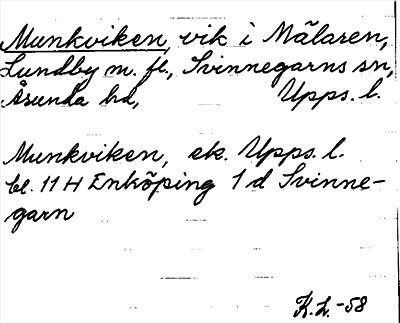 Munkviken, vik i Mälaren,
Lundby m. fl., Svinnegarns sn,
Åsunda hd, Upps. l.
Munkviken, ek. Upps. l.
bl. 11 H Enköping 1 d Svinne-
garn
K. L. -58